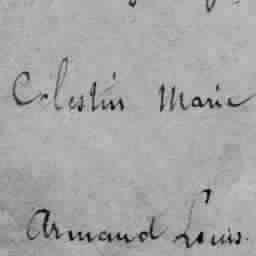 Celestin Marie
Armand Louis.